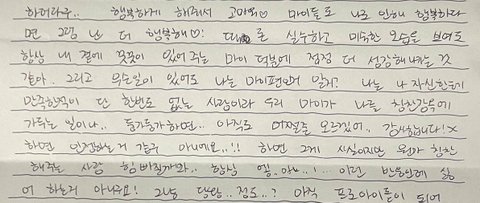 하더라구.. 행복하게 해줘서 고마워♡ 마이들도 나로 인해 행복하다
면 그럼 난 더 행복해♡! 때론 실수하고 미숙한 모습을 보여도
항상 내 곁에 꿋꿋이 있어 주는 마이 덕분에 점점 더 성장해나가는 것
같아. 그리고 무슨일이 있어도 나는 마이편인거 알지? 나는 나 자신한테
만족한적이 단 한번도 없는 사람이라 우리 마이가 나를 칭찬감옥에
가두는 일이나.. 둥가둥가하면... 아직도 어쩔줄 모르겠어.. 감사합니다!×
하면 인정하는거 같구 아니에요..!! 하면 그게 사실이지만 뭔가 칭찬
해주는 사람 힘빠질까봐.. 항상 엥..아뇨..!... 이런 반응인데 싫
어 하는거 아니구요! 그냥 당황..정도..? 아직 프로아이돌이 되어